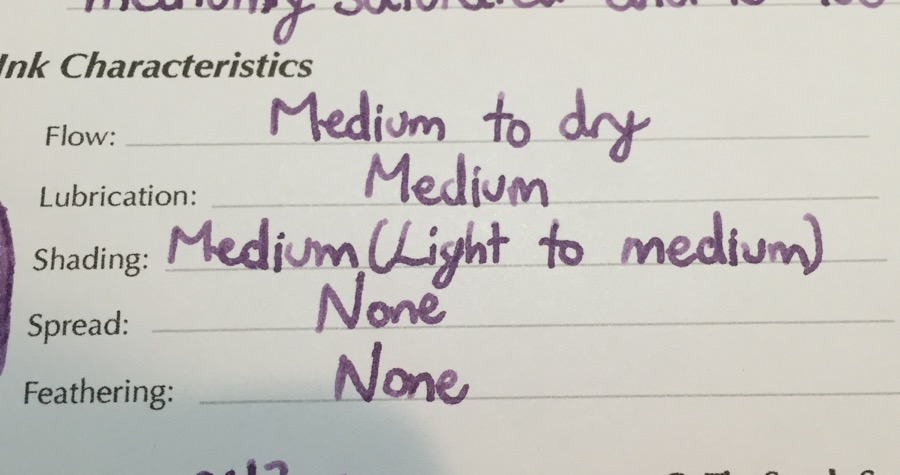 Ink Characteristics
Flow: Medium to dry
Lubrication: Medium
Shading: Medium (Light to medium)
Spread: None
Feathering: None